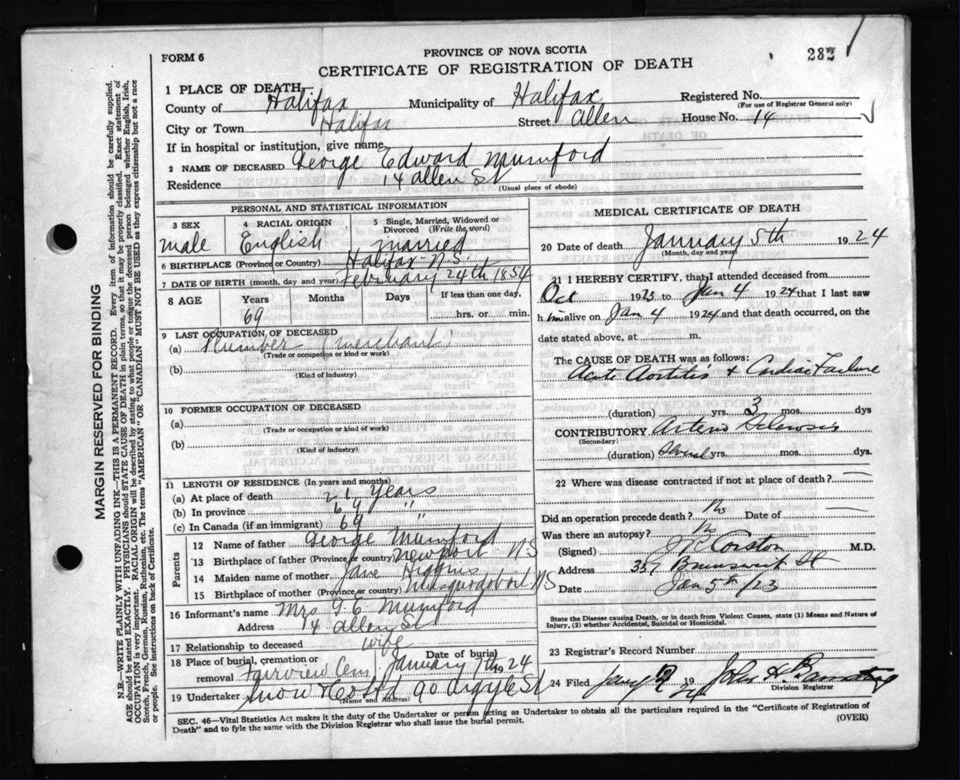 PROVINCE OF NOVA SCOTIA
282
FORM 6
CERTIFICATE OF REGISTRATION OF DEATH
1 PLACE OF DEATH
County of Halifax Municipality of Halifax Registered No.
(For use of Registrar General only)
City or Town Halifax Street Allen House No. 14
If in hospital or institution, give name
2 NAME OF DECEASED George Edward Mumford
Residence 14 Allen St
(Usual place of abode)
PERSONAL AND STATISTICAL INFORMATION
3 SEX 4 RACIAL ORIGIN 5 Single, Married, Widowed or Divorced (Write the word)
male English married
6 BIRTHPLACE (Province or Country) Halifax N.S.
7 DATE OF BIRTH (month, day and year) February 24th 1854
8 AGE Years Months Days If less than one day,
69 hrs. or min.
9 LAST OCCUPATION OF DECEASED
(a) Plumber (merchant)
(Trade or occupation or kind or work)
(b)
(Kind of industry)
10 FORMER OCCUPATION OF DECEASED
(a)
(Trade or occupation or kind of work)
(b)
(Kind of industry)
11 LENGTH OF RESIDENCE (In years and months)
(a) At place of death 21 years
(b) In province 69 "
(c) In Canada (if an immigrant) 69 "
Parents
12 Name of father George Mumford
13 Birthplace of father (Province or country) Newport N S
14 Maiden name of mother Jane Higgins
15 Birthplace of mother (Province or country) Musquodoboit N S
16 Informant's name Mrs G. E. Mumford
Address 14 Allen St
17 Relationship to deceased wife
18 Place of burial, cremation or removal Fairview Cem Date of burial January 7th 1924
19 Undertaker Snow & Co Ltd 90 Argyle St
(Name and Address)
MEDICAL CERTIFICATE OF DEATH
20 Date of death January 5th 1924
(Month, day and year)
21 I HEREBY CERTIFY, that I attended deceased from
Oct 1923 to Jan 4 1924 that I last saw
him alive on Jan 4 1924 and that death occurred, on the
date stated above, at m.
The CAUSE OF DEATH was as follows:
Acute Aortitis & Cardiac Failure
(duration) yrs. 3 mos. dys
CONTRIBUTORY Arterio Sclerosis
(Secondary)
(duration) Several yrs. mos. dys
22 Where was disease contracted if not at place of death?
Did an operation precede death? No Date of
Was there an autopsy? No
(Signed) M.D.
Address 357 Brunswick St
Date Jan 5th/23
State the Disease causing Death, or in death from Violent Causes, state (1) Means and Nature of Injury, (2) whether Accidental, Suicidal or Homicidal.
23 Registrar's Record Number
24 Filed Jany 9 1924 John H.
Division Registrar
SEC. 46—Vital Statistics Act makes it the duty of the Undertaker or person acting as Undertaker to obtain all the particulars required in the "Certificate of Registration of
Death" and to fyle the same with the Division Registrar who shall issue the burial permit.
(OVER)
MARGIN RESERVED FOR BINDING
N.B.—WRITE PLAINLY WITH UNFADING INK—THIS IS A PERMANENT RECORD. Every item of information should be carefully supplied.
AGE should be stated EXACTLY. PHYSICIANS should STATE CAUSE OF DEATH in plain terms, so that it may be properly classified. Exact statement of
OCCUPATION is very important. RACIAL ORIGIN will be described by stating to what people or tongue the deceased person belonged whether English, Irish,
Scotch, French, German, Russian, Ruthenian, etc. The terms "AMERICAN" or "CANADIAN" MUST NOT BE USED as they express citizenship but not a race
or people. See instructions on back of Certificate.